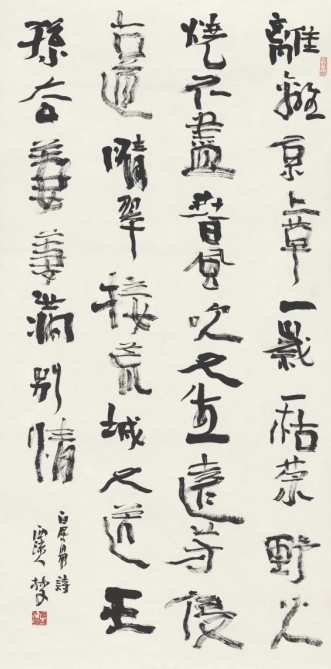 離離原上草一歲一枯榮野火
燒不盡春風吹又生遠芳侵
古道晴翠接荒城又送王
孫去萋萋滿別情
白居易詩